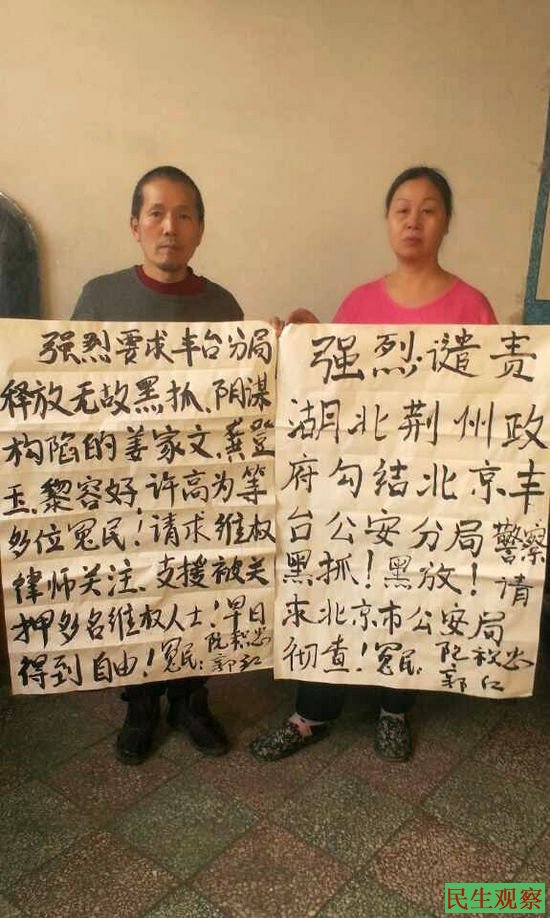 强烈要求丰台分局
释放无故黑抓、阴谋
构陷的姜家文、龚登
玉、黎容好、许高为等
多位冤民！请求维权
律师关注、支援被关
押多名维权人士！早日
得到自由！冤民：阮
郭红
强烈谴责
湖北荆州政
府勾结北京丰
台公安分局警察
黑抓！黑放！请
求北京市公安局
彻查！冤民：阮
郭红
民生观察